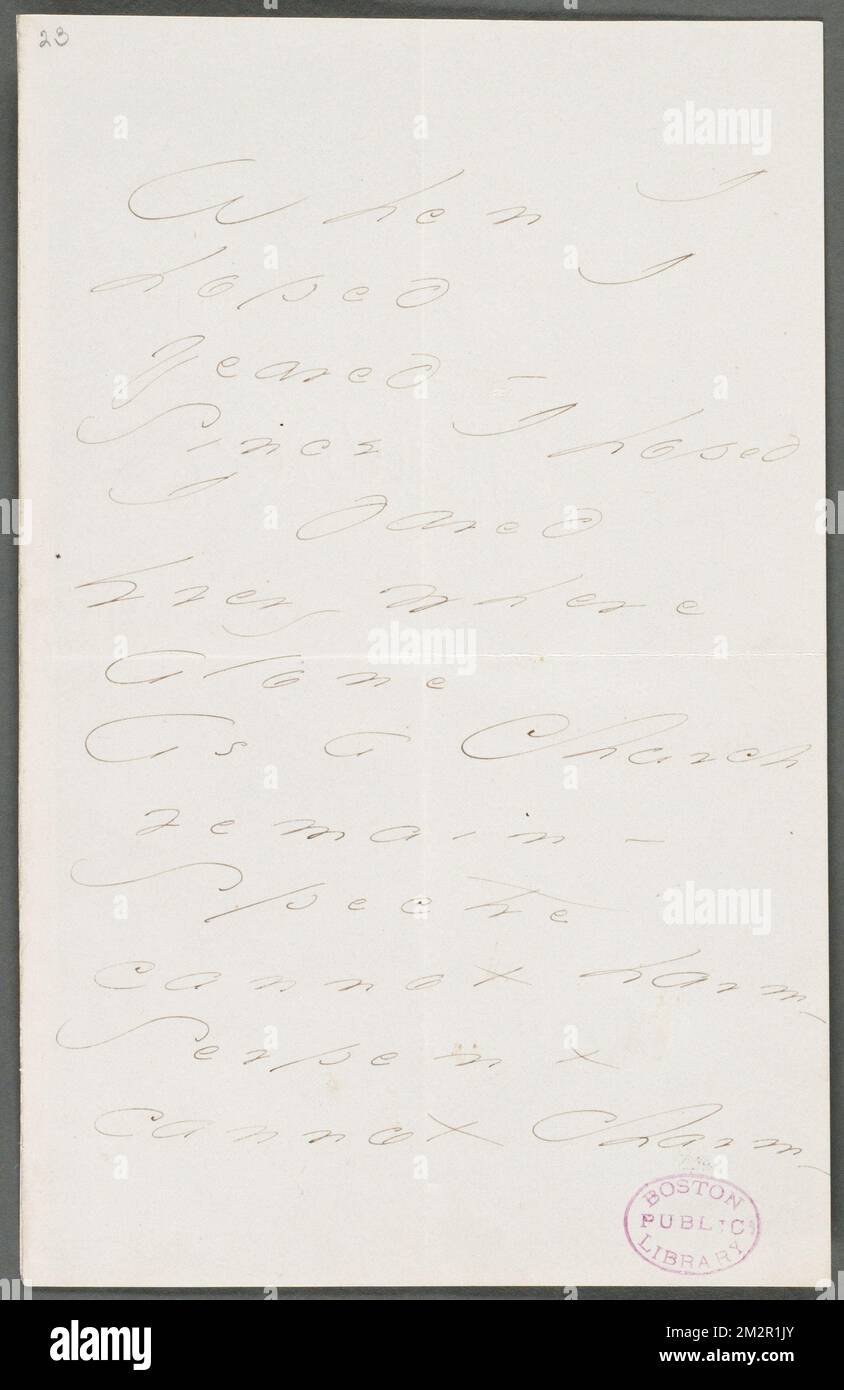 23
When I
hoped I
feared -
Since I hoped
I dared
Every where
Alone
As a Church
remain -
Spectre
cannot harm -
Serpent
cannot charm -
BOSTON
PUBLIC
LIBRARY
alamy
alamy
alamy
alamy
Image ID: 2M2R1JY
www.alamy.com